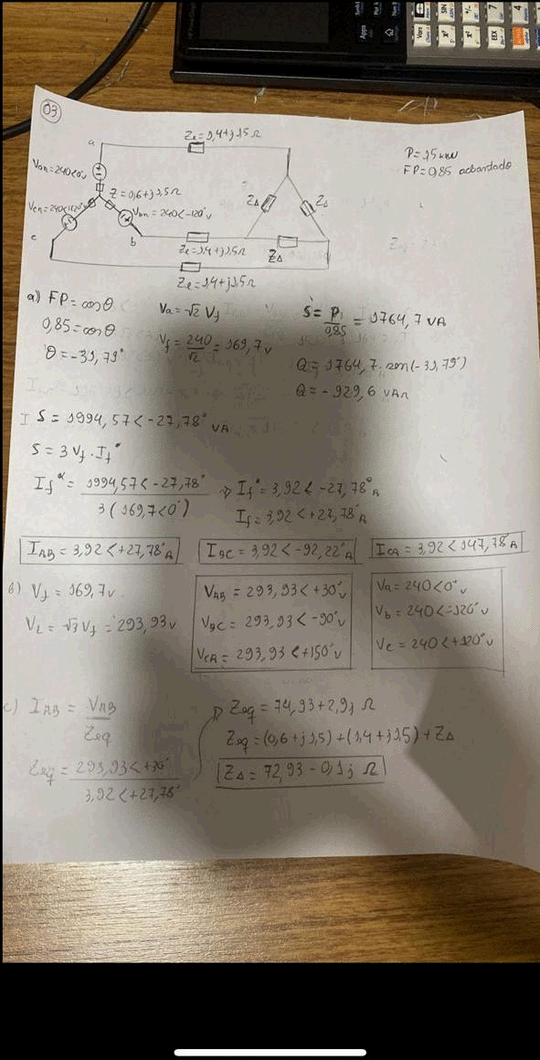 03
a
Zℓ=1,4+j15Ω
P=1,5 kW
FP=0,85 adiantado
Van=240<0°v
Z=0,6+j1,5Ω
Vcn=240<120°v
Vbn=240<-120°v
ZΔ
ZΔ
c
b
Zℓ=1,4+j1,5Ω
ZΔ
Zℓ=1,4+j1,5Ω
a) FP=cosθ
0,85=cosθ
θ=-31,79°
Va=√2 Vf
Vf=240/√2=169,7v
S=P/0,85=1764,7 VA
Q=1764,7.sen(-31,79°)
Q=-929,6 VAr
S=1994,57<-27,78° VA
S=3Vf.If*
If*=1994,57<-27,78°/3(169,7<0°) → If*=3,92<-27,78°A
If=3,92<+27,78°A
IAB=3,92<+27,78°A
IBC=3,92<-92,22°A
ICA=3,92<147,78°A
b) Vf=169,7v
VL=√3Vf=293,93v
VAB=293,93<+30°v
VBC=293,93<-90°v
VCA=293,93<+150°v
Va=240<0°v
Vb=240<-120°v
Vc=240<+120°v
c) IAB=VAB/Zeq
Zeq=293,93<+30°/3,92<+27,78°
Zeq=74,93+2,9j Ω
Zeq=(0,6+j1,5)+(1,4+j1,5)+ZΔ
ZΔ=72,93-0,1j Ω